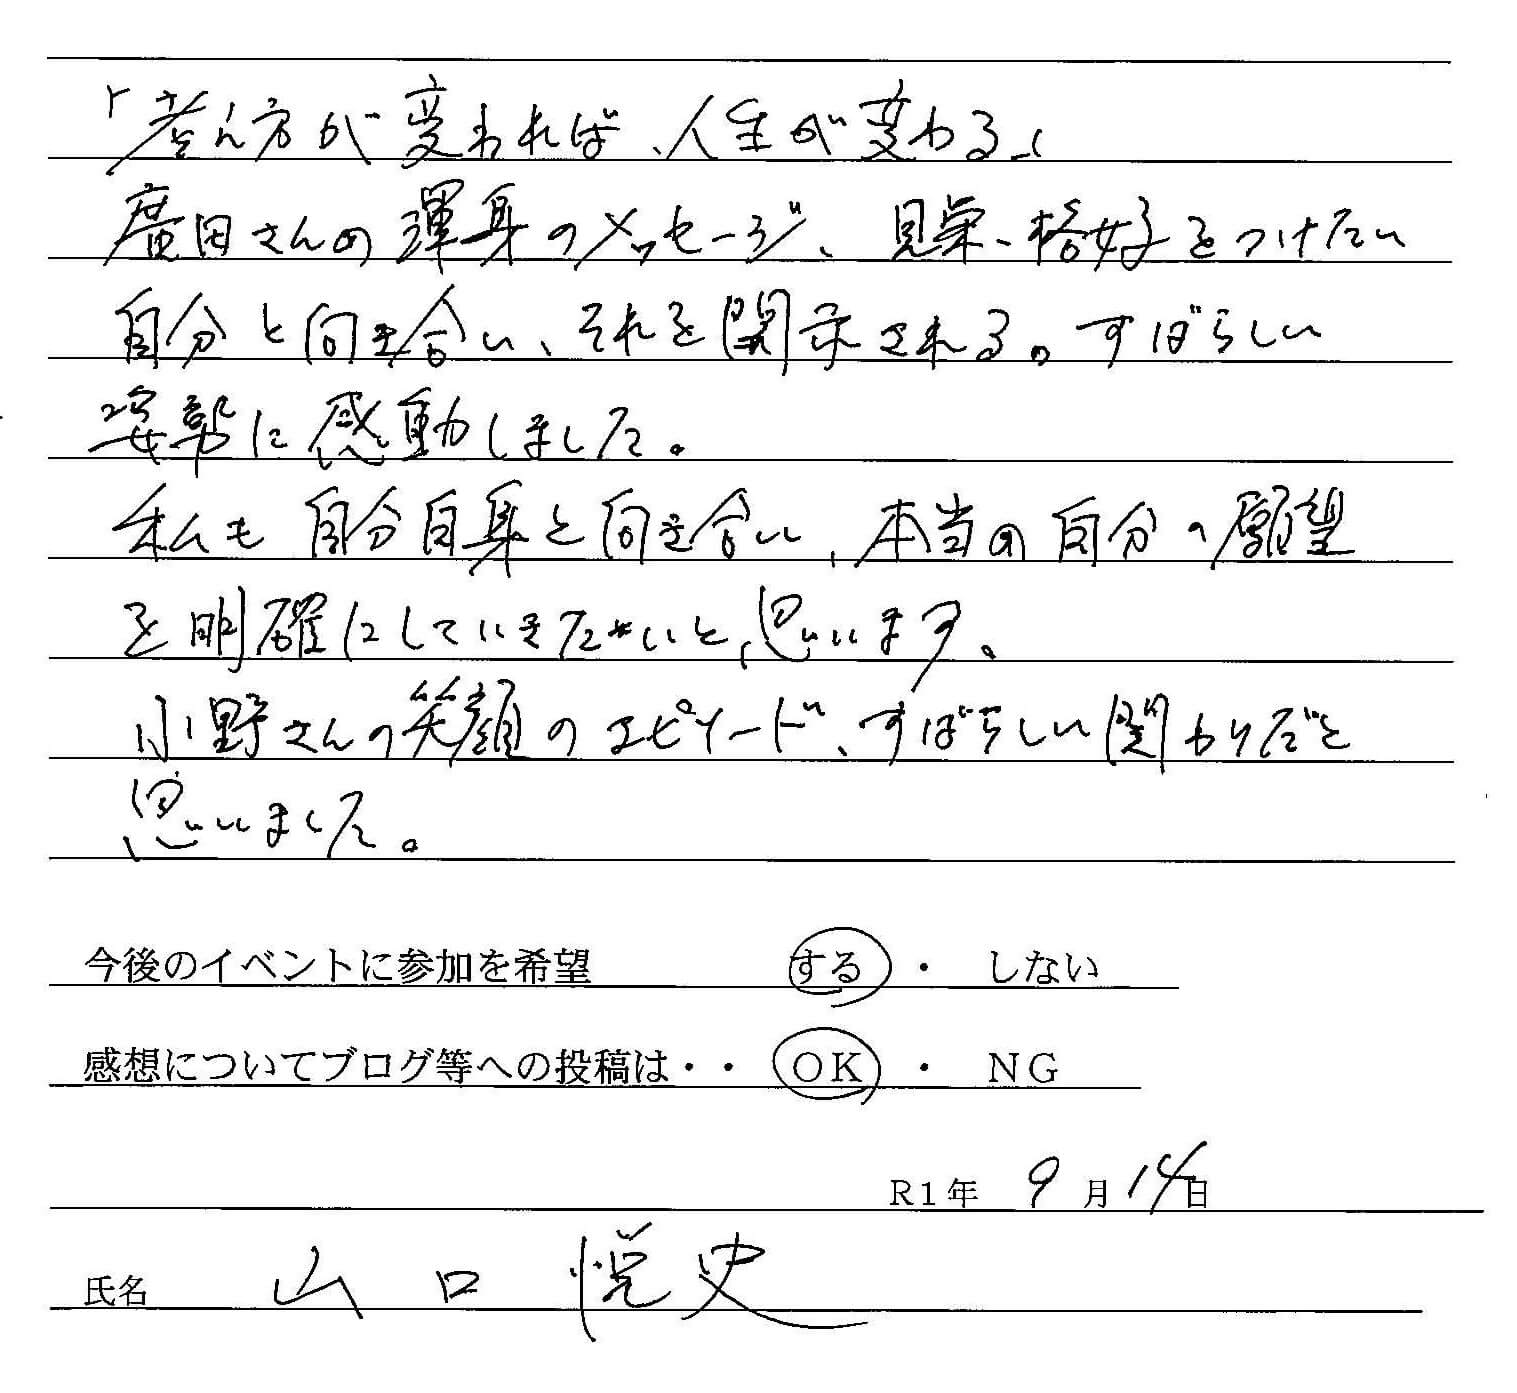 「考え方が変われば、人生が変わる」
廣田さんの渾身のメッセージ、見栄・格好をつけたい
自分と向き合い、それを開示される。すばらしい
姿勢に感動しました。
私も自分自身と向き合い、本当の自分の願望
を明確にしていきたいと、思います。
小野さんの笑顔のエピソード、すばらしい関わりだと
思いました。
今後のイベントに参加を希望 する ・ しない
感想についてブログ等への投稿は・・ OK ・ NG
R1年 9月14日
氏名 山口悦史